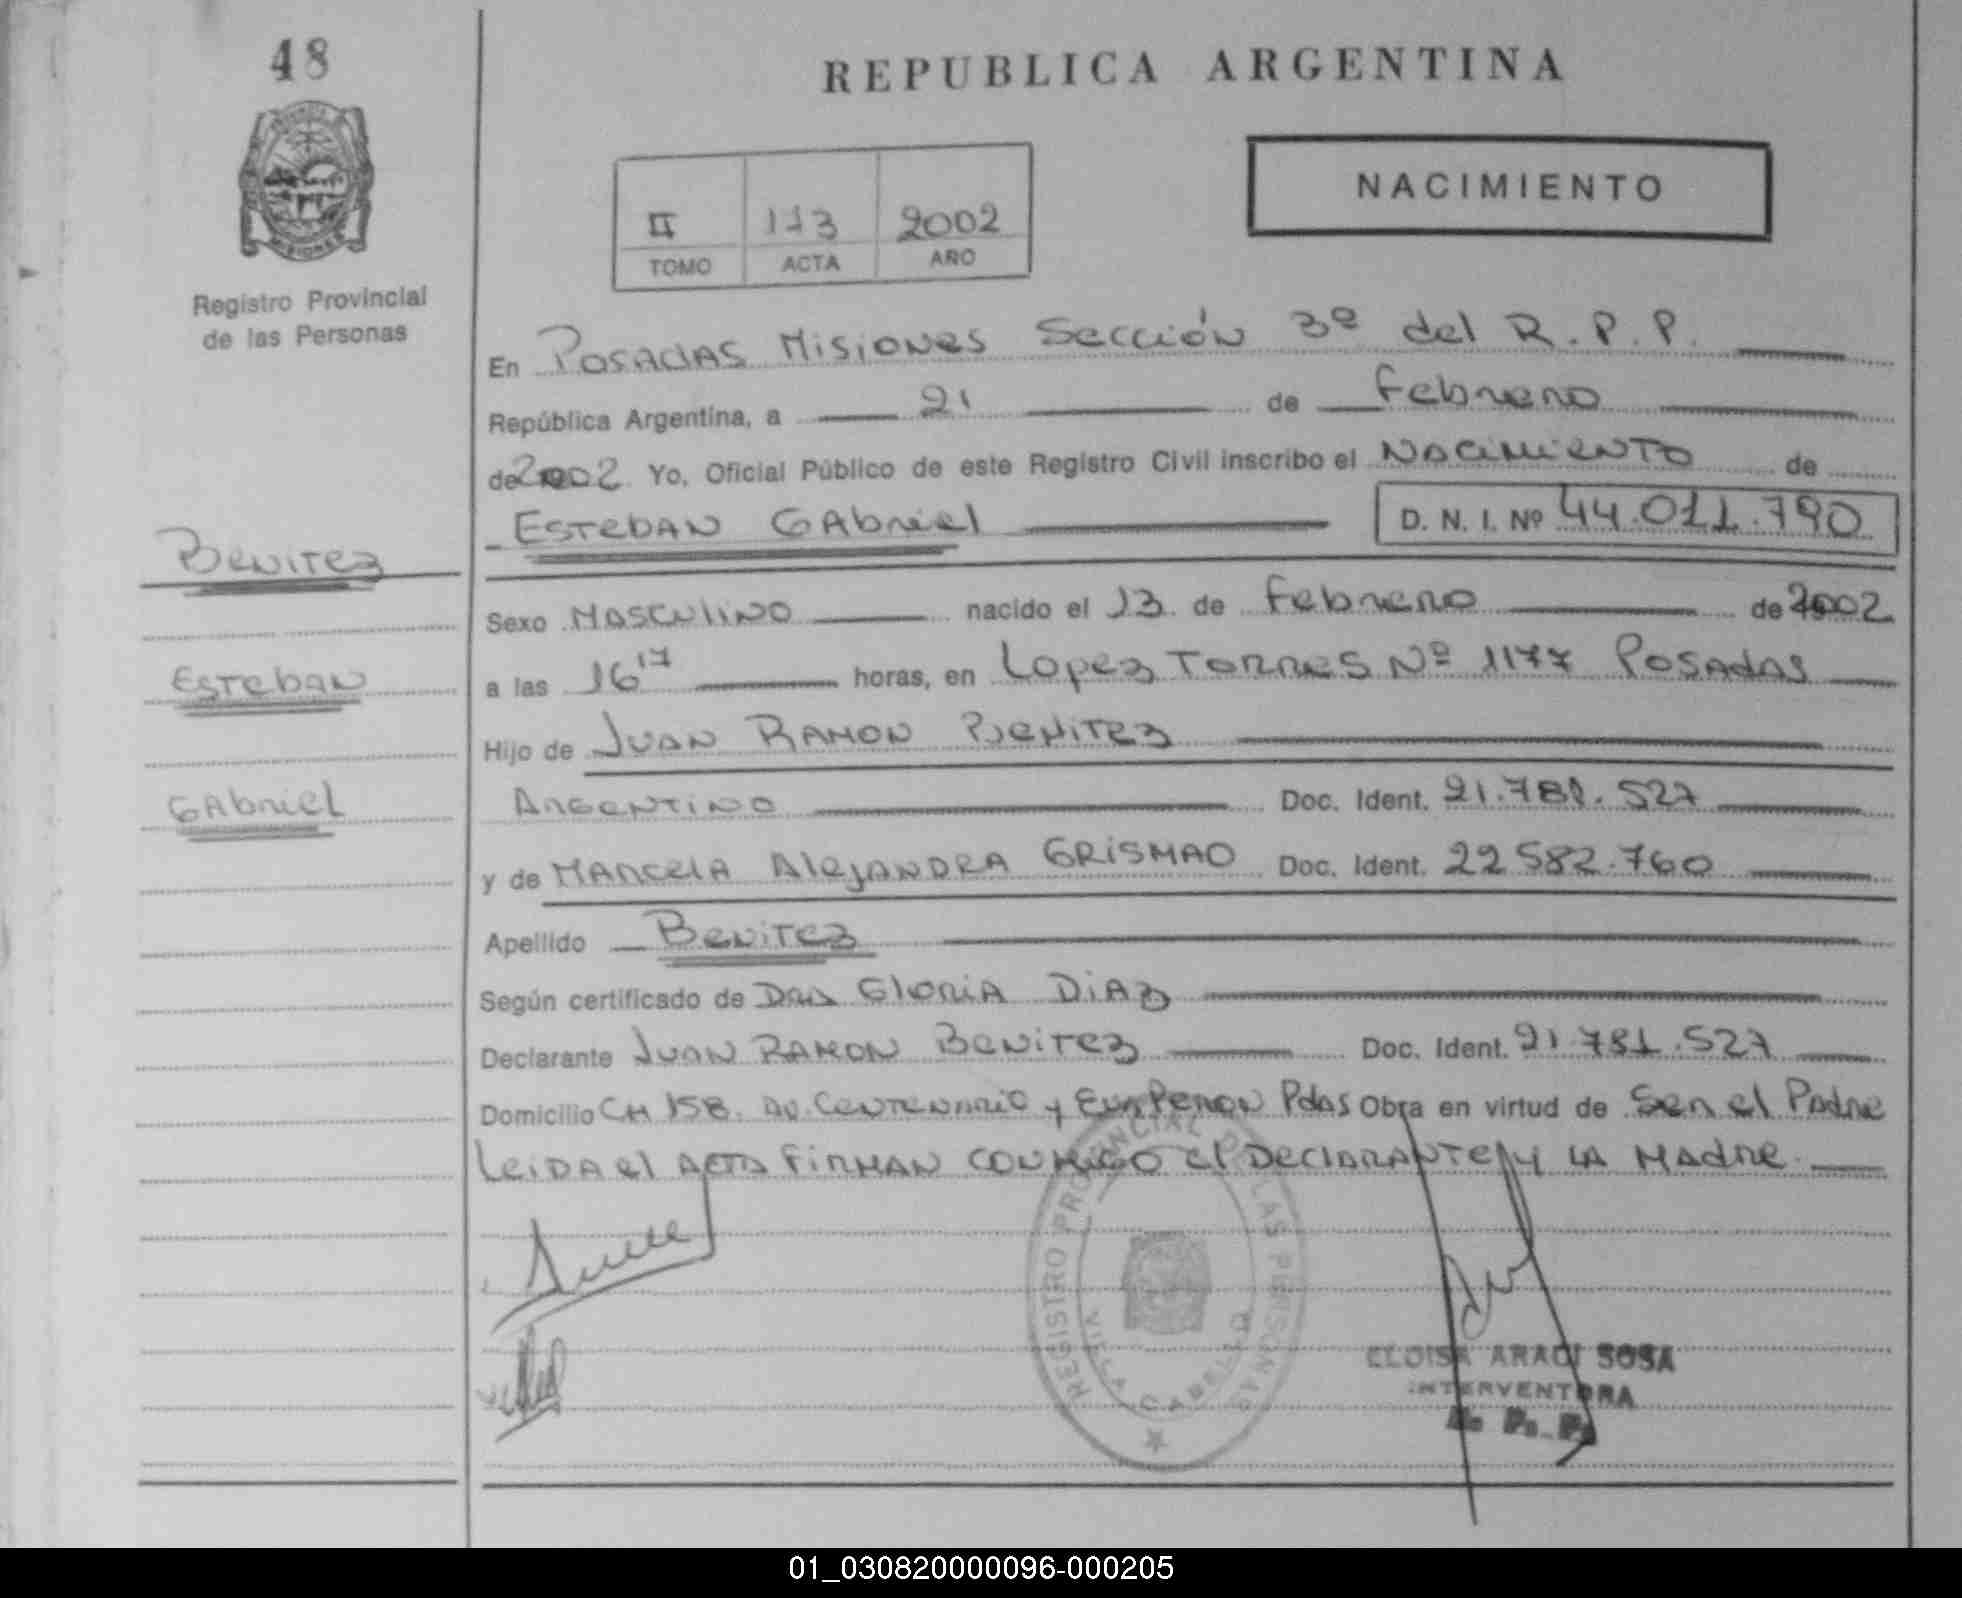 48
REPUBLICA ARGENTINA
NACIMIENTO
II 113 2002
TOMO ACTA AÑO
MISIONES
Registro Provincial
de las Personas
En Posadas Misiones Sección 3º del R.P.P.
República Argentina, a 21 de Febrero
de 2002. Yo, Oficial Público de este Registro Civil inscribo el Nacimiento de
Esteban Gabriel D. N. I. Nº 44.011.790
Benitez
Esteban
Gabriel
Sexo Masculino nacido el 13 de Febrero de 2002
a las 16 17 horas, en Lopez Torres Nº 1177 Posadas
Hijo de Juan Ramon Benitez
Argentino Doc. Ident. 21.781.527
y de Marcela Alejandra Grismao Doc. Ident. 22.582.760
Apellido Benitez
Según certificado de Dra Gloria Diaz
Declarante Juan Ramon Benitez Doc. Ident. 21.781.527
Domicilio CH 158. Av. Centenario y Eva Peron Pdas Obra en virtud de Ser el Padre
Leida el Acta Firman conmigo el Declarante y la Madre.
REGISTRO PROVINCIAL DE LAS PERSONAS
VILLA CABELLO
ELOISA ARACI SOSA
INTERVENTORA
R. P. P.
01_030820000096-000205